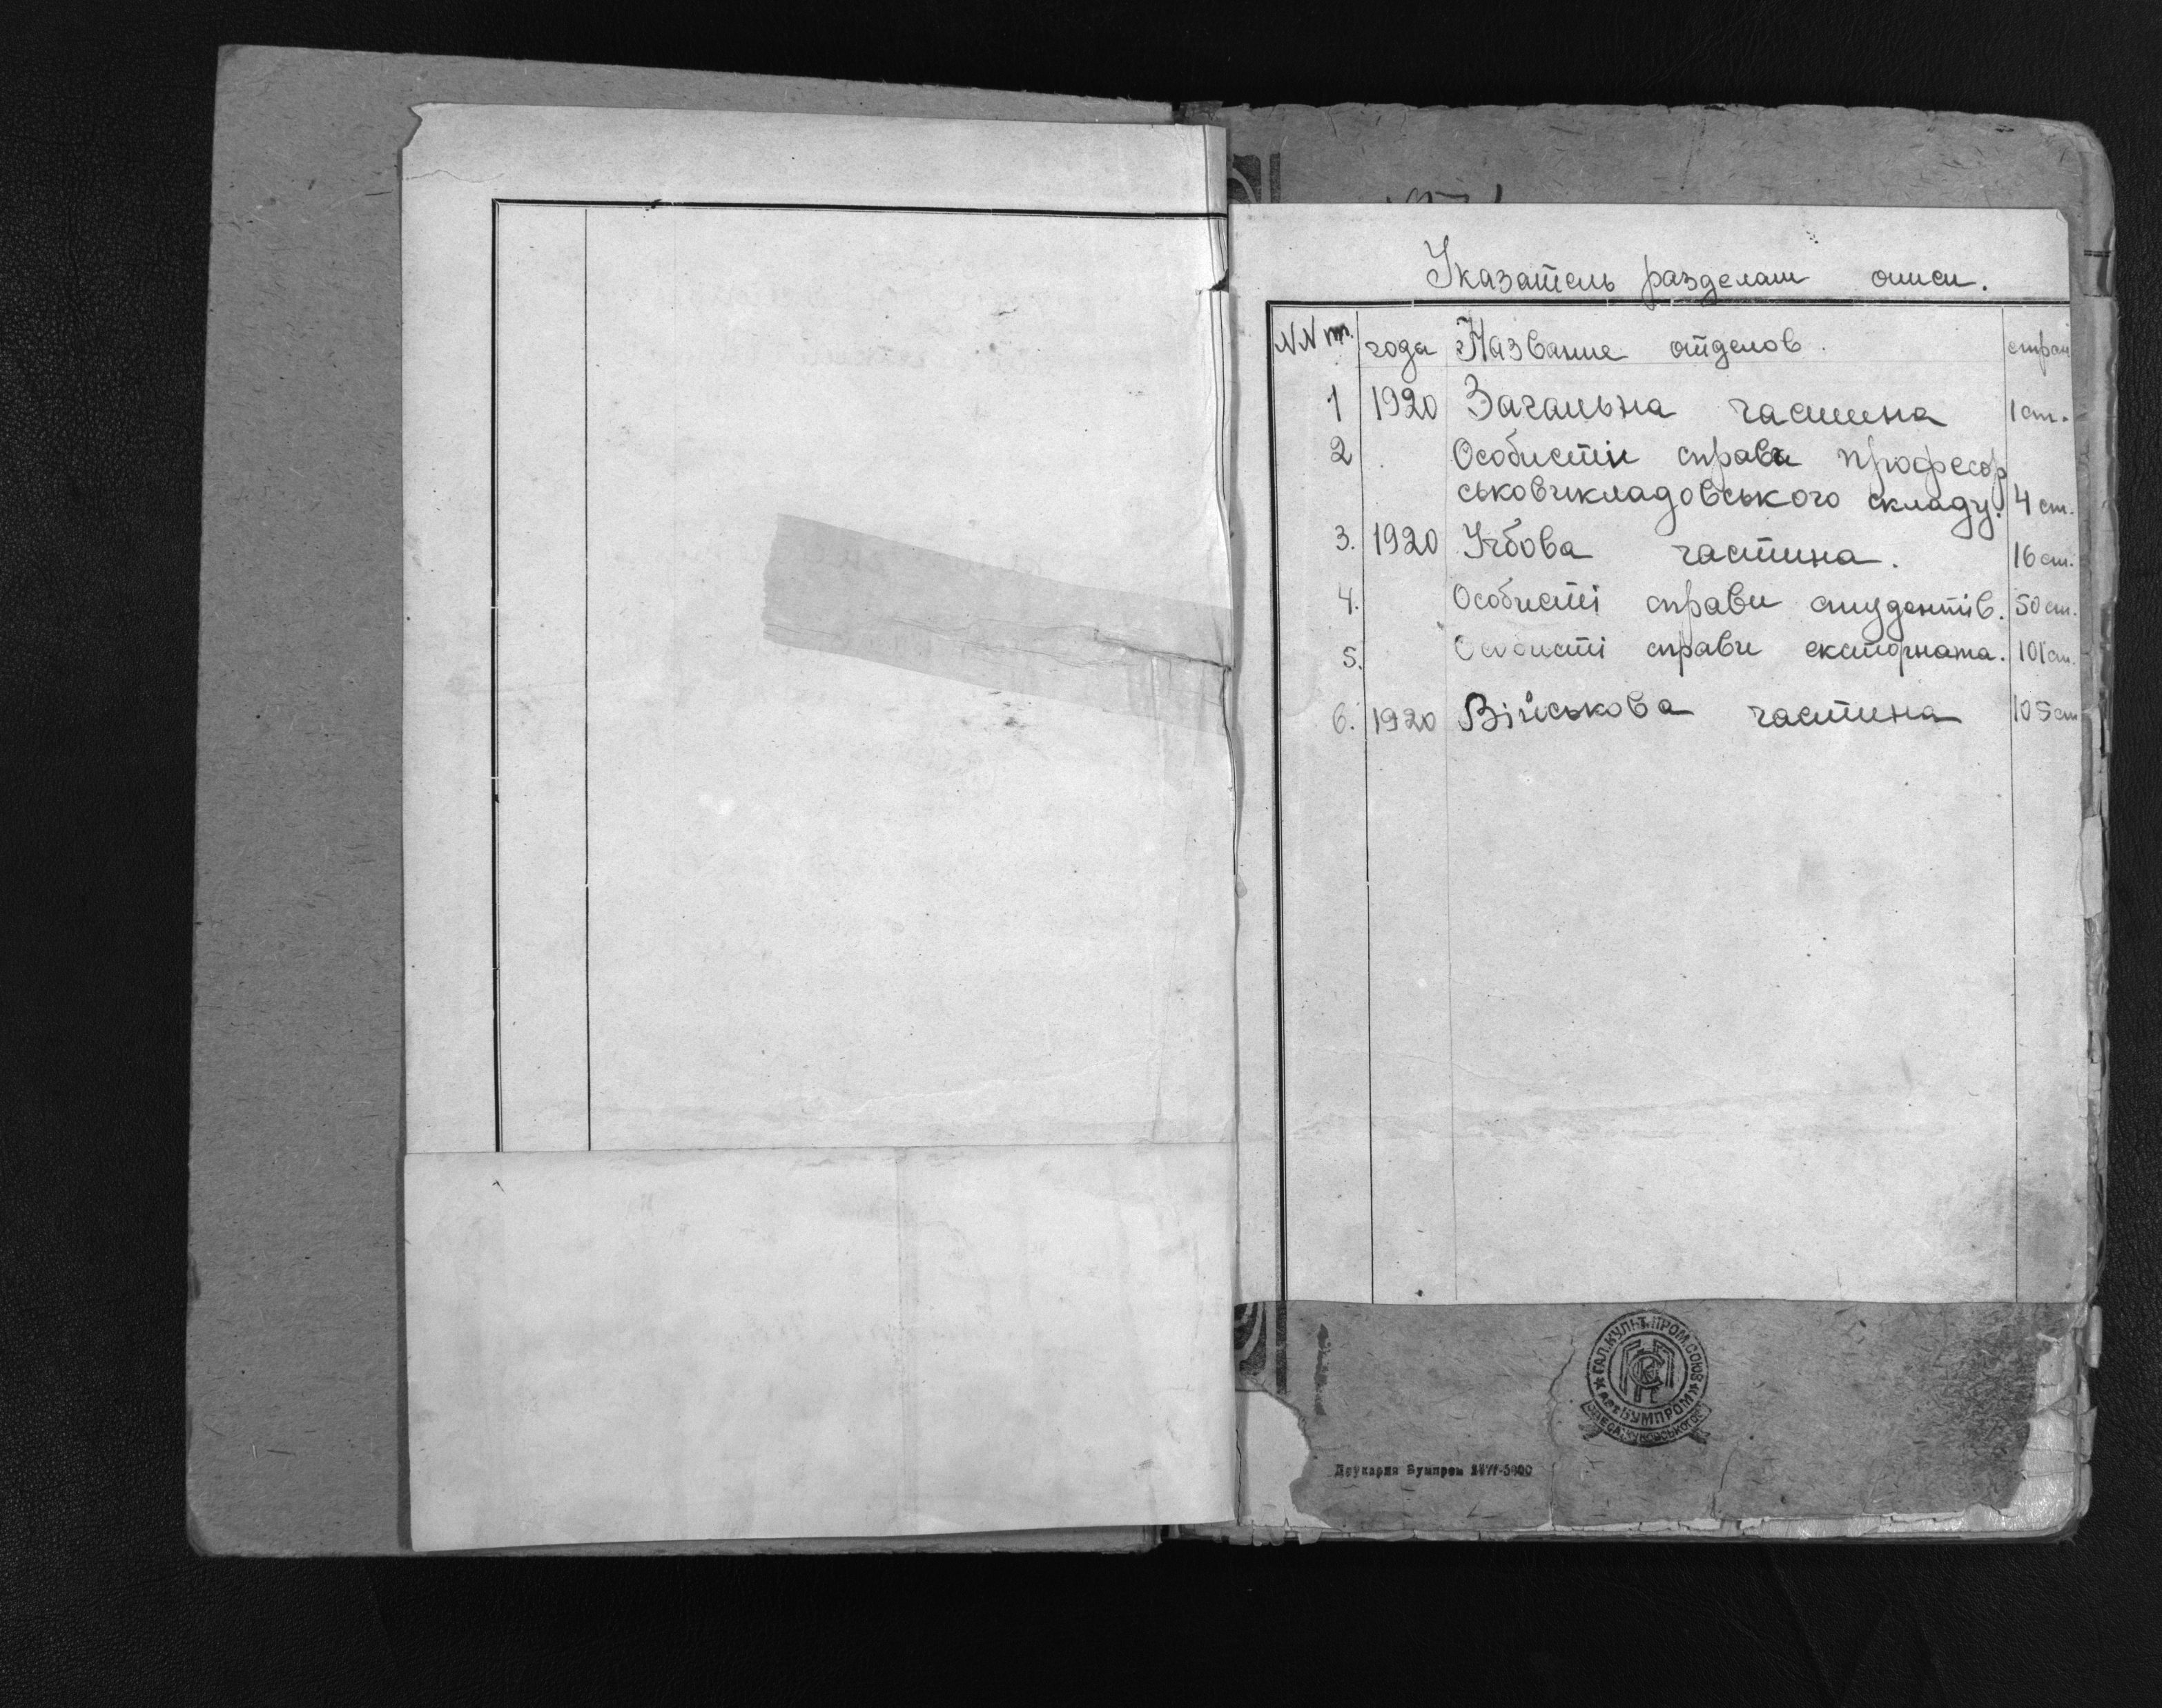 Указатель разделам описи.
NN пп. года Название отделов. стран
1 1920 Загальна частина 1 ст.
2 Особисти справи професор
ськовикладовського складу. 4 ст.
3. 1920 Учбова частина. 16 ст.
4. Особисті справи студентів. 50 ст.
5. Особисті справи екстерната. 101 ст.
6. 1920 Військова частина 105 ст
ГАЛ. КУЛЬТ. ПРОМ. СОЮЗ
Арт. БУМПРОМ
Друкарня Бумпром